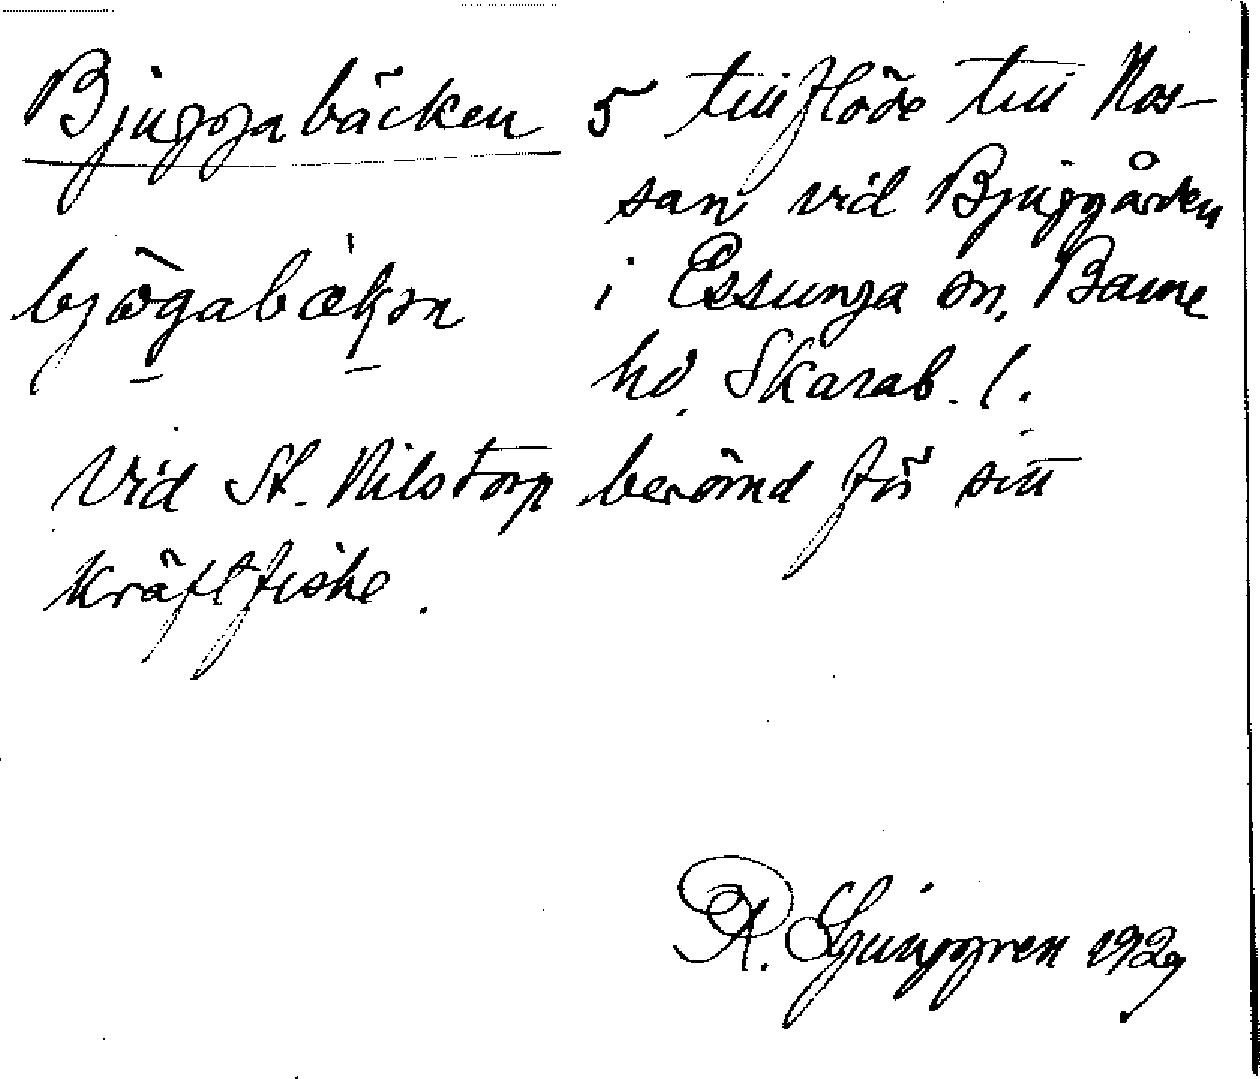 Bjuggabäcken 5 tillflöde till Nos-
san vid Bjuggården
bjɷ̀gabækən i Essunga sn, Barne
hd. Skarab. l.
Vid St. Nilstorp berömd för sitt
kräftfiske.
R. Ljunggren 1929